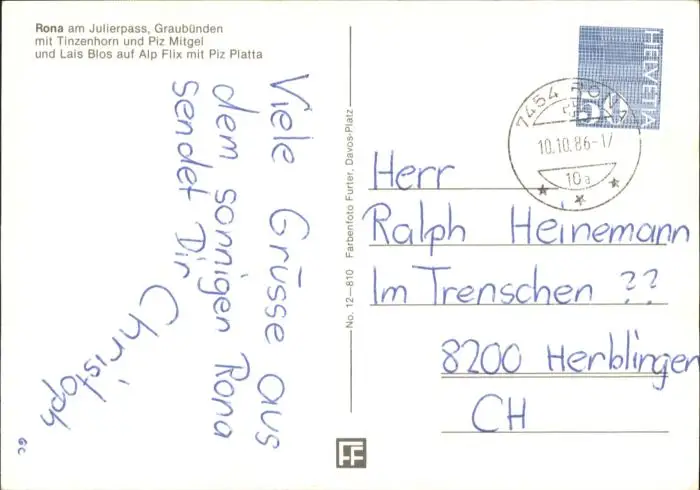 Rona am Julierpass, Graubünden
mit Tinzenhorn und Piz Mitgel
und Lais Blos auf Alp Flix mit Piz Platta
Viele Grüsse aus
dem sonnigen Rona
sendet Dir
Christoph
No. 12—810 Farbenfoto Furter, Davos-Platz
HELVETIA
7454 RONA
10.10.86-17
10a
Herr
Ralph Heinemann
Im Trenschen ??
8200 Herblingen
CH
FF